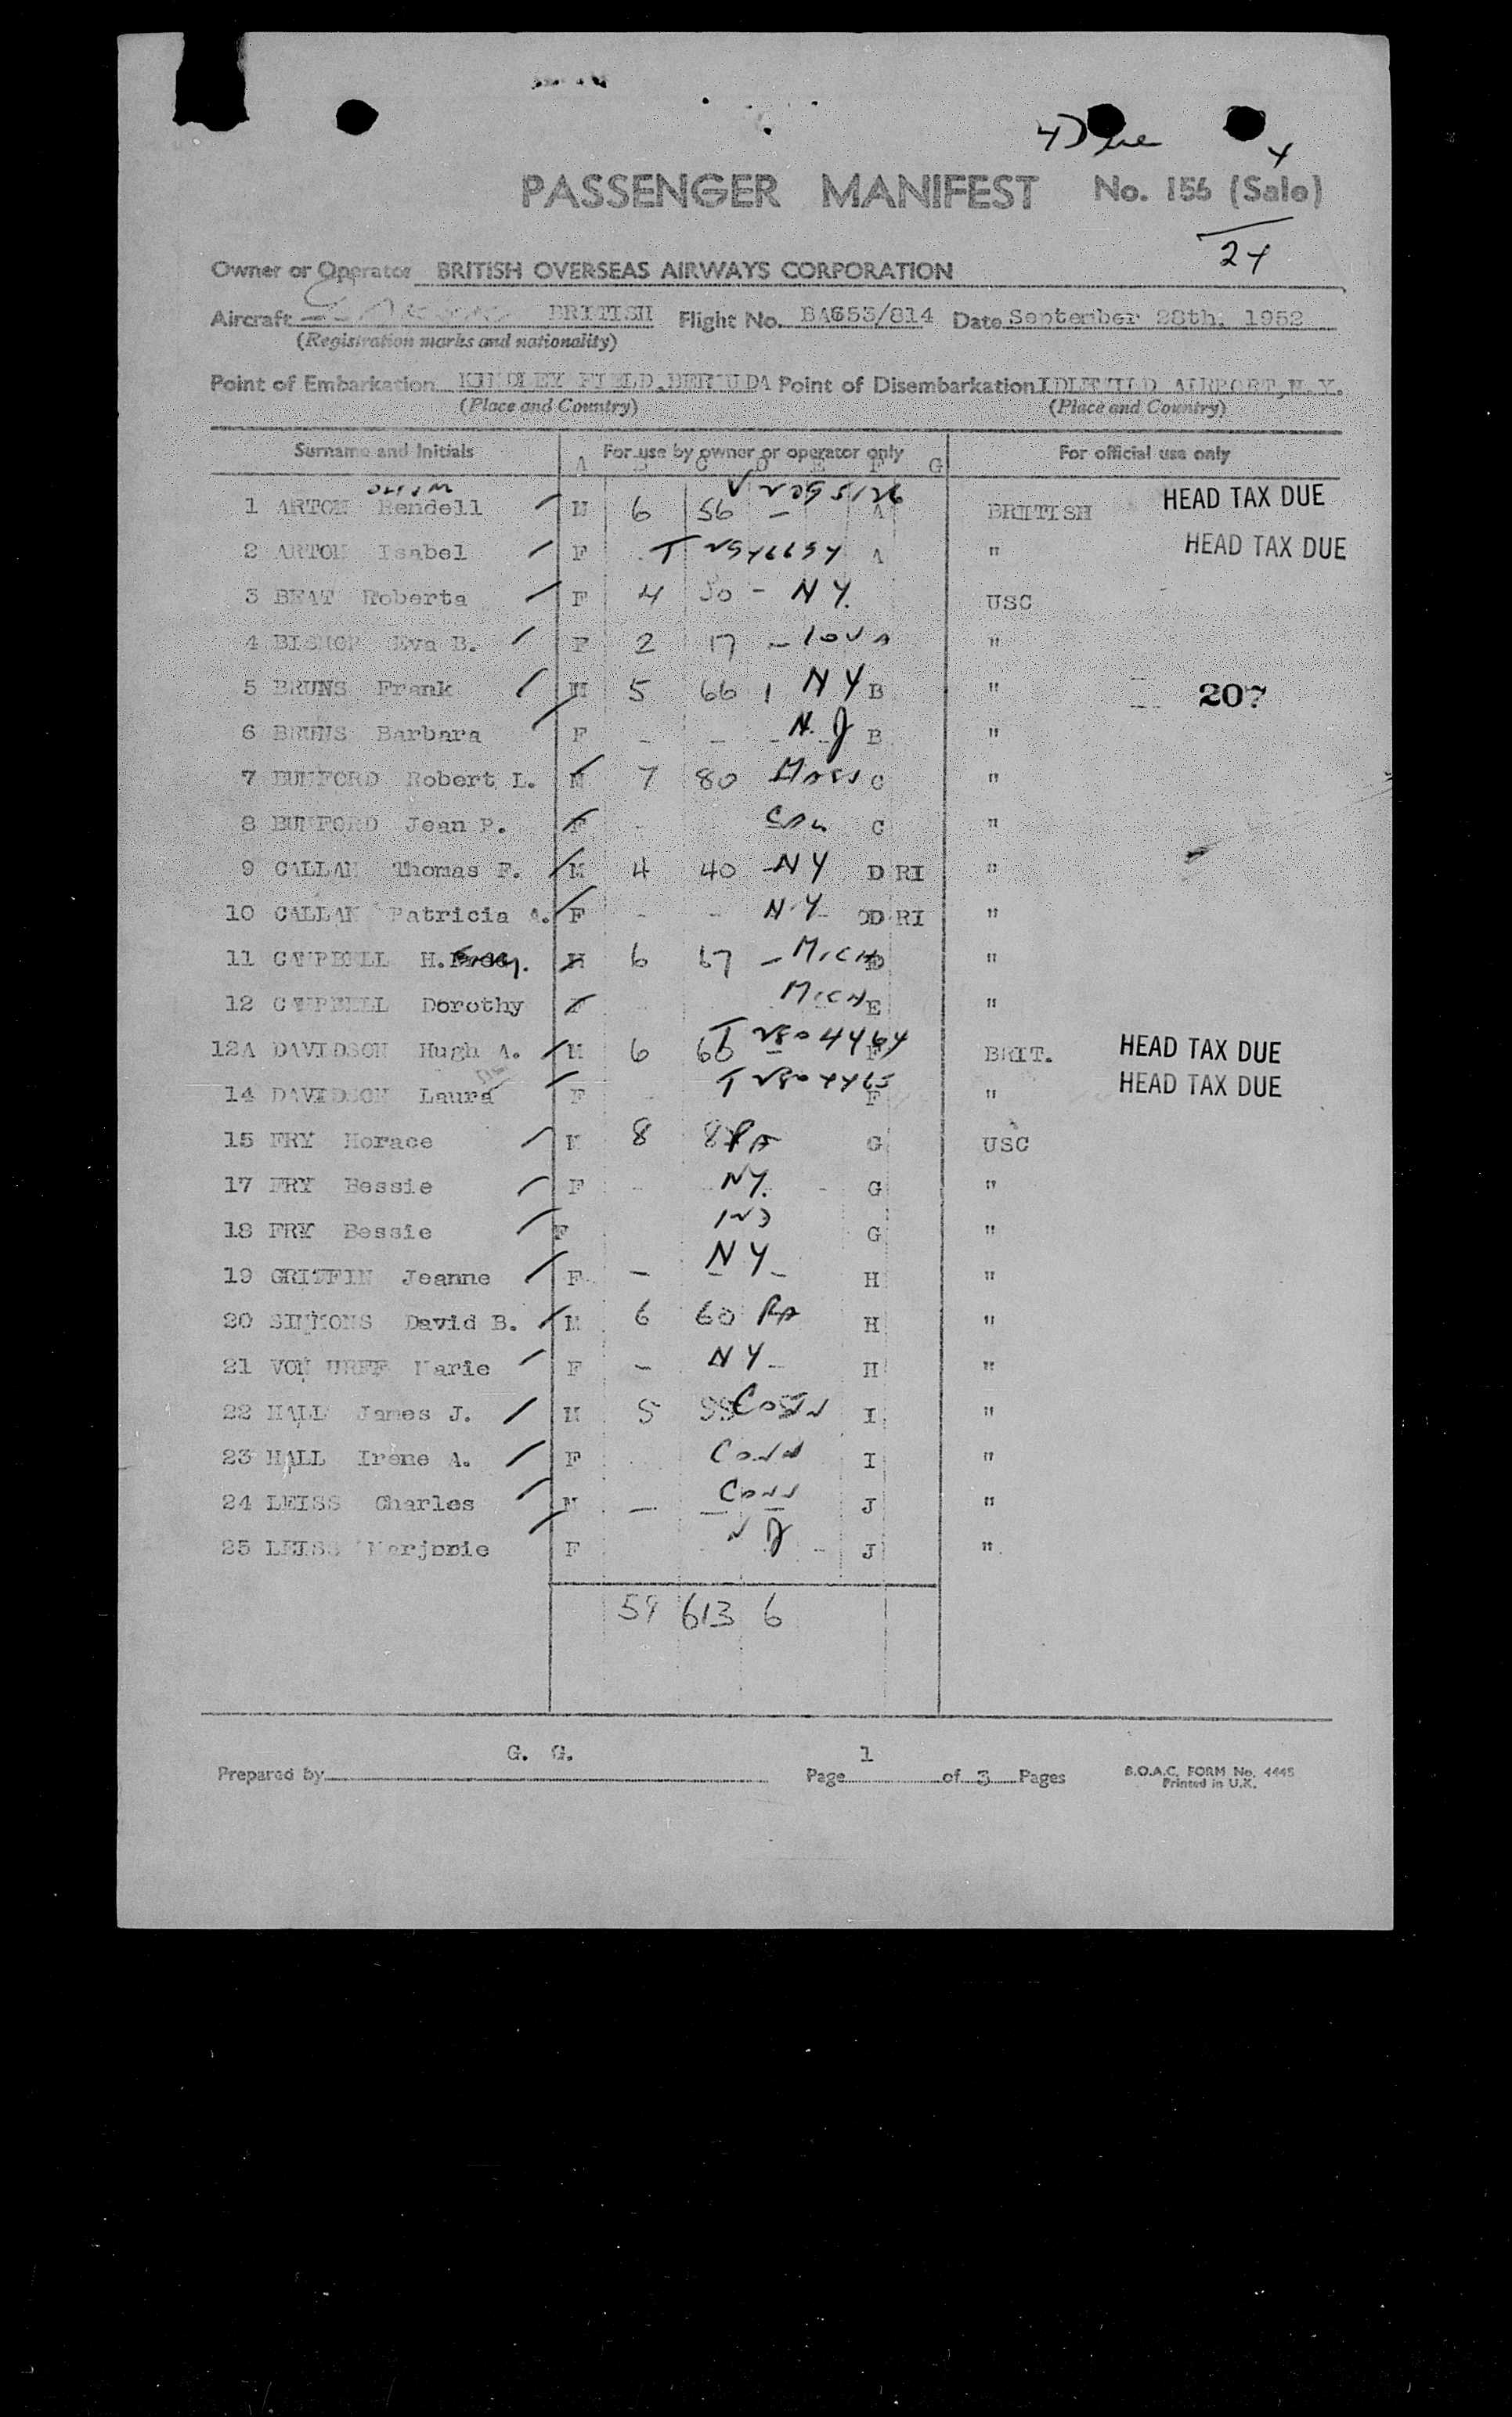 4 Due
4
PASSENGER MANIFEST No. 156 (Sale)
24
Owner or Operator BRITISH OVERSEAS AIRWAYS CORPORATION
Aircraft BRITISH Flight No. BA655/814 Date September 28th, 1952
(Registration marks and nationality)
Point of Embarkation KINDLEY FIELD, BERMUDA Point of Disembarkation IDLEWILD AIRPORT, N.Y.
(Place and Country) (Place and Country)
Surname and Initials For use by owner or operator only For official use only
A B C D E F G
1 ARTON Rendell M 6 56 - A BRITISH HEAD TAX DUE
2 ARTON Isabel F A " HEAD TAX DUE
3 BEAT Roberta F 4 30 - NY. USC
4 BISHOP Eva B. F 2 17 - Iowa "
5 BRUNS Frank M 5 66 1 NY B " 207
6 BRUNS Barbara F - - - N.J B "
7 BUMFORD Robert L. M 7 80 Mass C "
8 BUMFORD Jean P. F - C "
9 CALLAN Thomas F. M 4 40 - NY D RI "
10 CALLAN Patricia A. F - - N.Y D RI "
11 CAMPBELL H. M 6 67 - MICH "
12 CAMPBELL Dorothy F MICH E "
12A DAVIDSON Hugh A. M 6 60 - F BRIT. HEAD TAX DUE
14 DAVIDSON Laura F - F " HEAD TAX DUE
15 FRY Horace M 8 PA G USC
17 FRY Bessie F - NY. - G "
18 FRY Bessie F IND G "
19 GRIFFIN Jeanne F - NY - H "
20 SIMMONS David B. M 6 60 PA H "
21 VON Marie F - NY - H "
22 HALL James J. M 5 55 Conn I "
23 HALL Irene A. F Conn I "
24 LEISS Charles M - - Conn J "
25 LEISS Marjorie F NJ - J "
59 613 6
G. G. 1
Prepared by Page of 3 Pages B.O.A.C. FORM No. 4445
Printed in U.K.